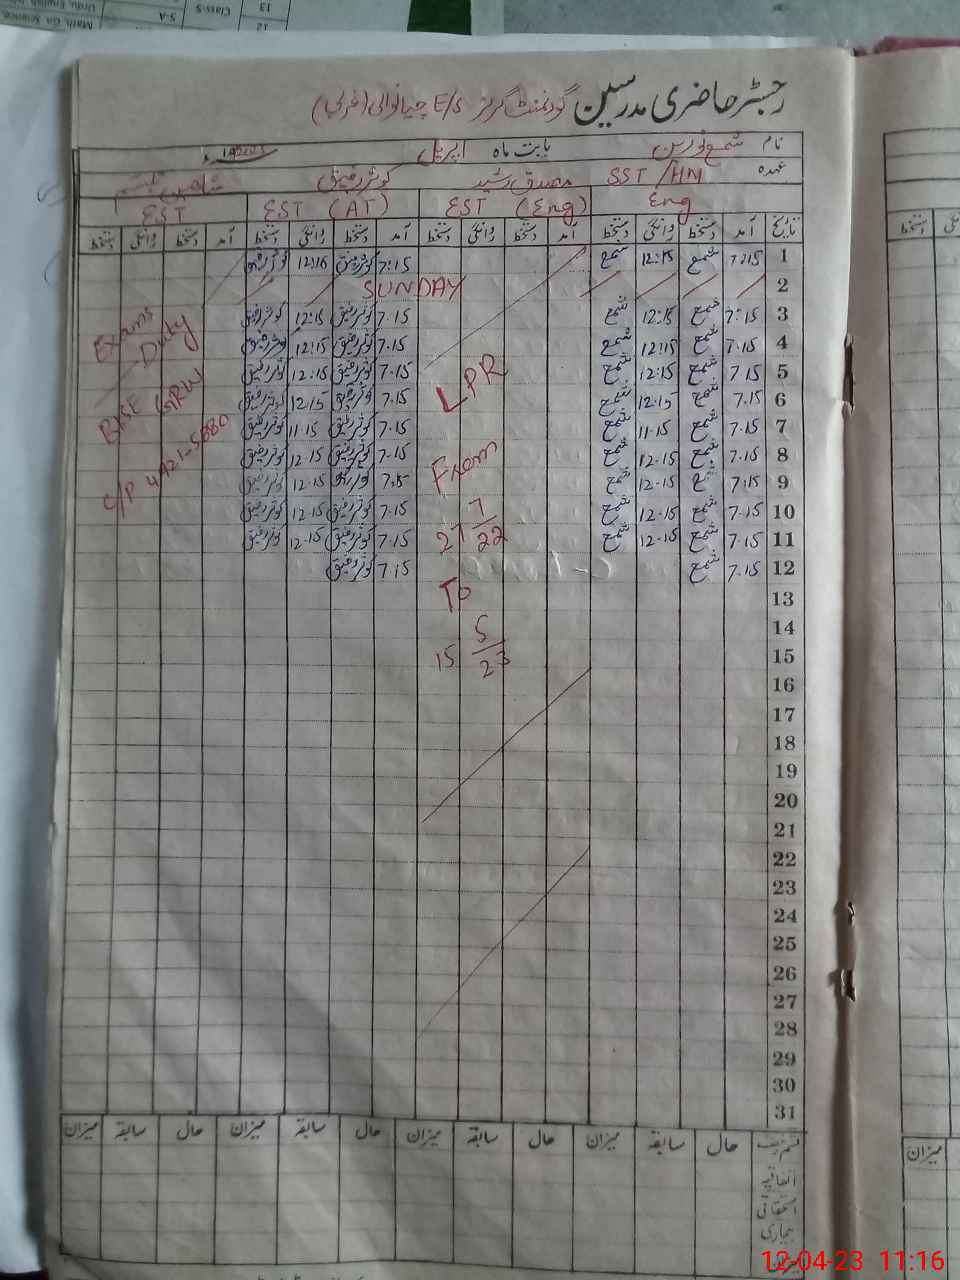 رجسٹر حاضری مدرسین گورنمنٹ گرلز E/S چیانوالی (غربی)
نام شمع نورین بابت ماہ اپریل
عہدہ SST/HM مصدق رشید کوثر رفیق
Eng EST (Eng) EST (AT) EST
تاریخ آمد دستخط روانگی دستخط آمد دستخط روانگی دستخط آمد دستخط روانگی دستخط آمد دستخط روانگی دستخط
1 7:15 شمع 12:15 شمع 7:15 کوثر رفیق 12:16
2 SUNDAY
3 7:15 شمع 12:15 شمع 7.15 کوثر رفیق 12:15 کوثر رفیق
4 7.15 شمع 12:15 شمع 7.15 کوثر رفیق 12:15 کوثر رفیق
5 7.15 شمع 12.15 شمع 7.15 کوثر رفیق 12.15 کوثر رفیق
6 7.15 شمع 12.15 شمع 7.15 کوثر رفیق 12.15 کوثر رفیق
7 7.15 شمع 11.15 شمع 7.15 کوثر رفیق 11.15 کوثر رفیق
8 7.15 شمع 12.15 شمع 7.15 کوثر رفیق 12.15 کوثر رفیق
9 7:15 شمع 12.15 شمع 7.15 12.15 کوثر رفیق
10 7.15 شمع 12.15 شمع 7.15 کوثر رفیق 12.15 کوثر رفیق
11 7.15 شمع 12.15 شمع 7.15 کوثر رفیق 12.15 کوثر رفیق
12 7.15 شمع 7.15 کوثر رفیق
13
14
15
16
17
18
19
20
21
22
23
24
25
26
27
28
29
30
31
LPR
From
27 7/22
To
15 5/23
Exams
Duty
BISE GRW
حال سابقہ میزان حال سابقہ میزان حال سابقہ میزان حال سابقہ میزان
اتفاقیہ
استحقاقی
بیماری
میزان
12-04-23 11:16